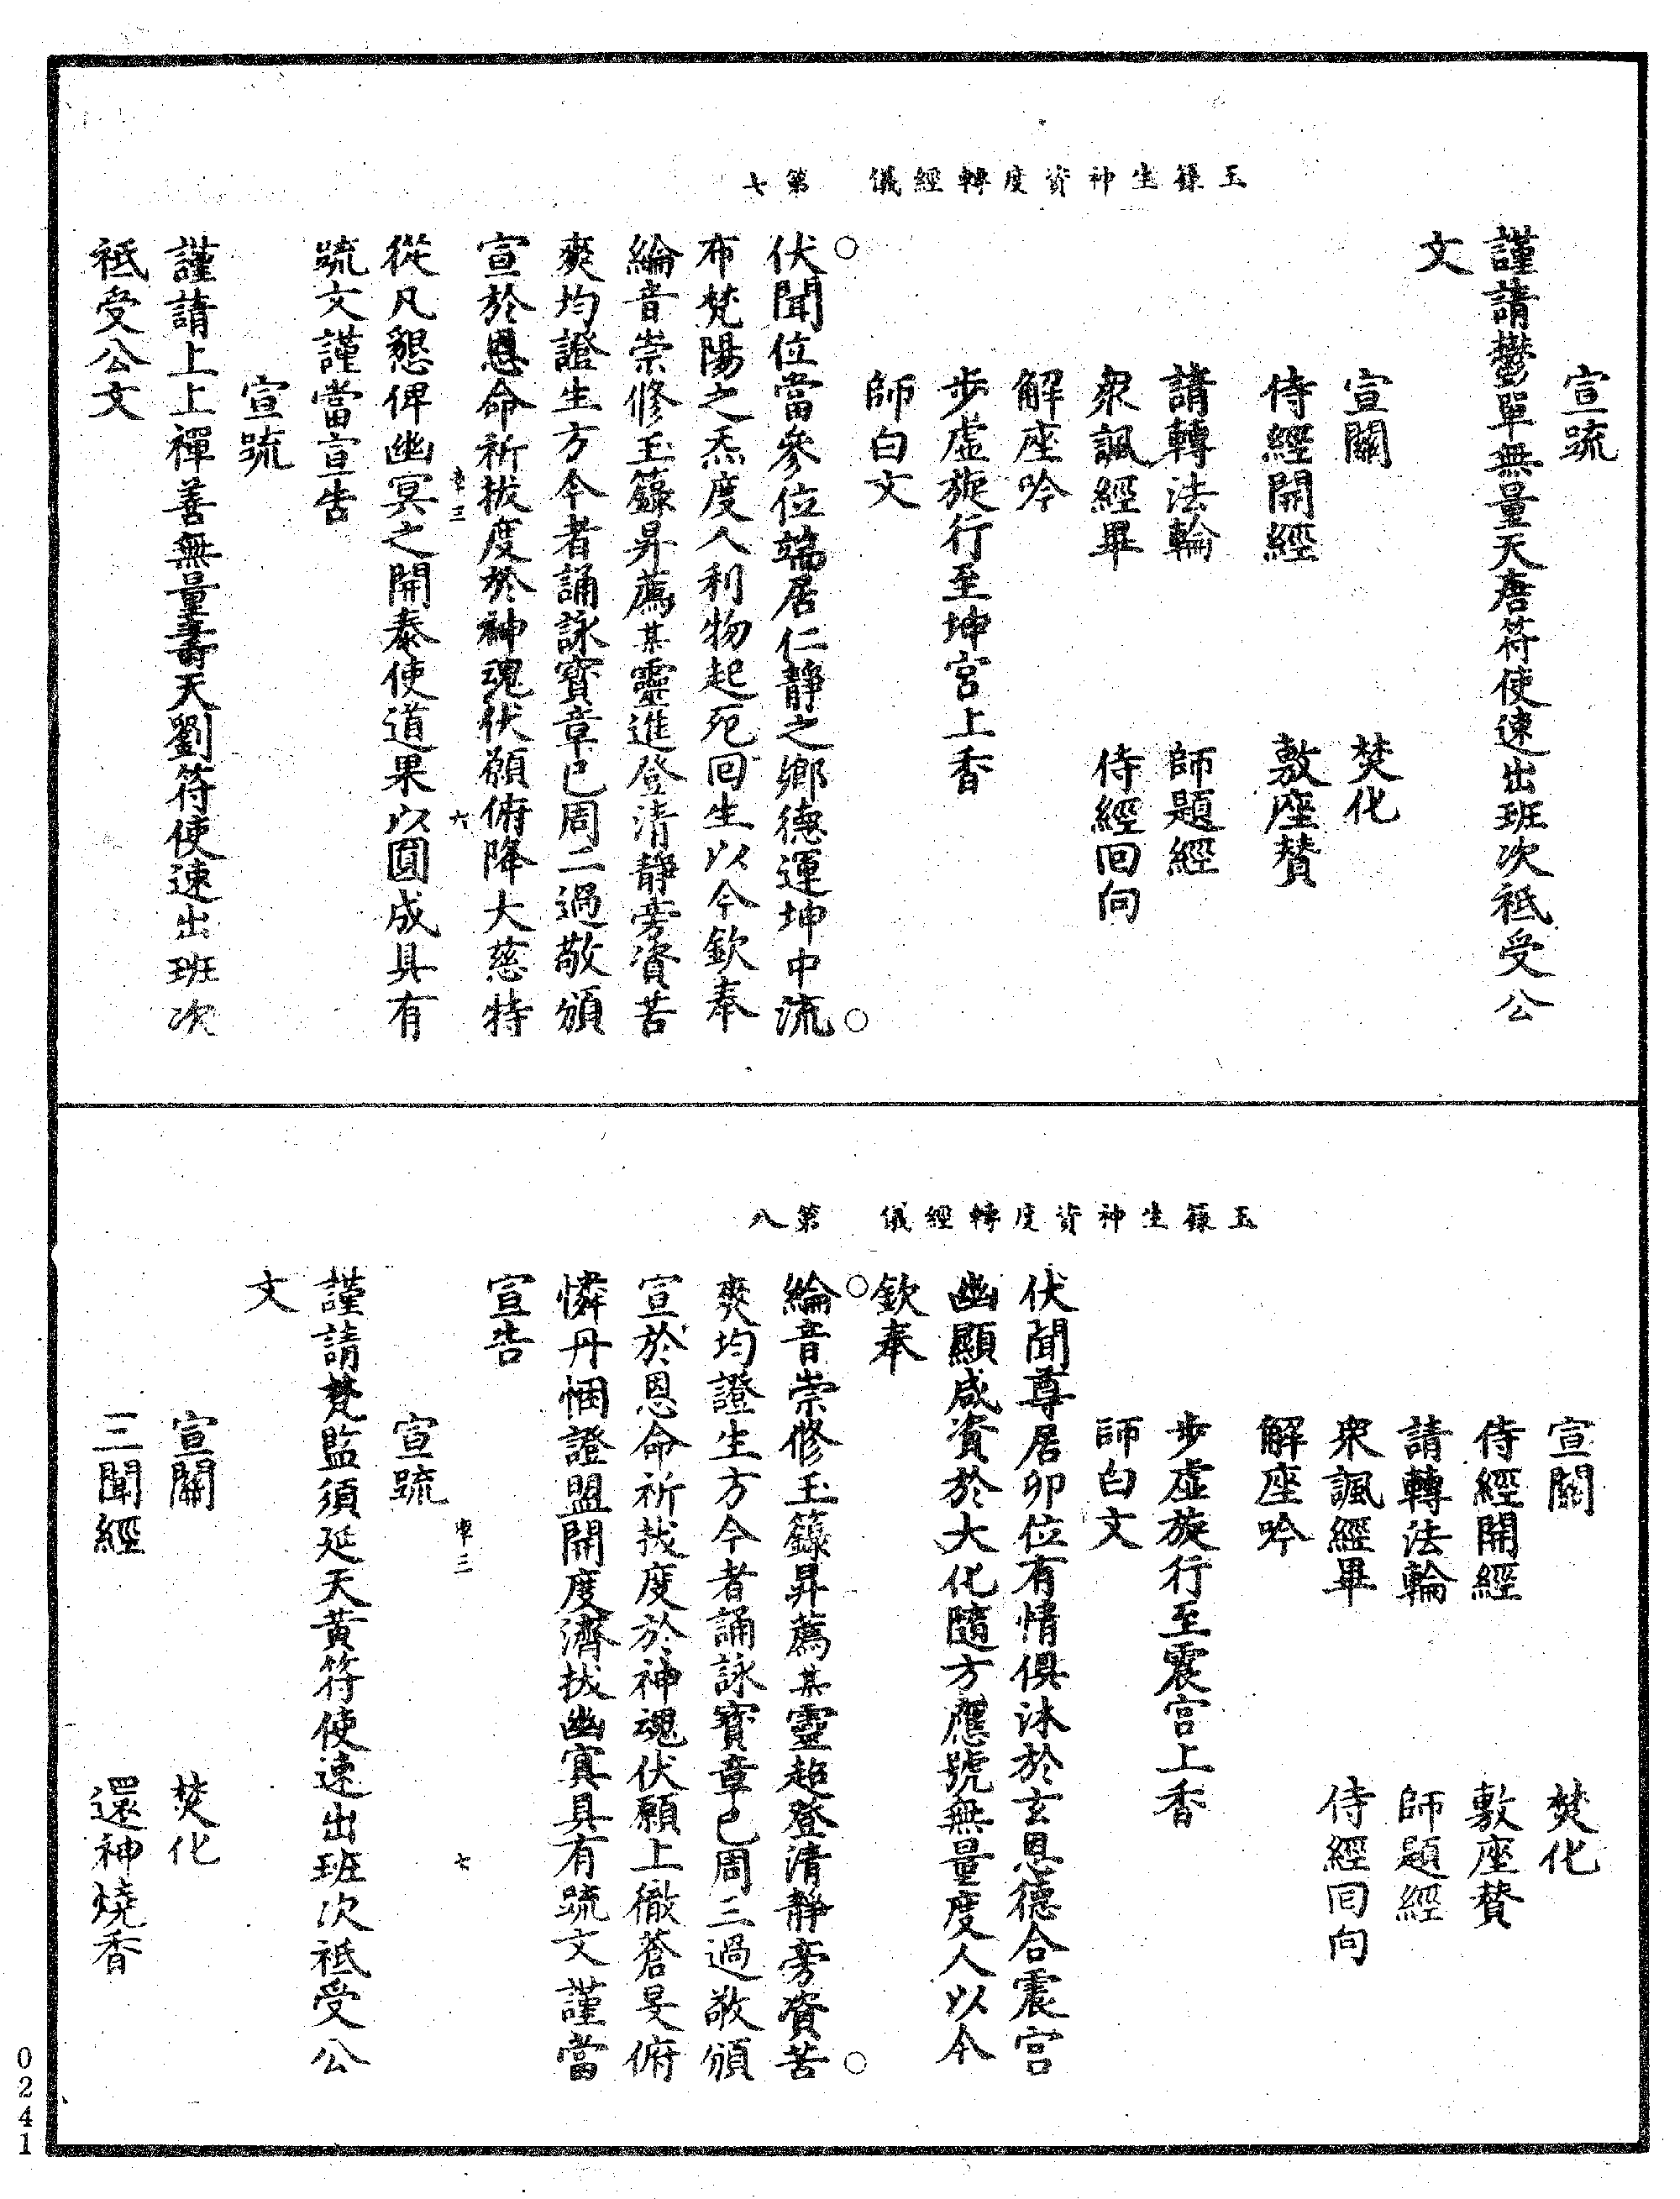 玉籙生神資度轉經儀　第七
宣䟽
謹請鬱單無量天唐符使速出班次祗受公
文
宣關　焚化
侍經開經　敷座贊
請轉法輪　師題經
衆諷經畢　侍經回向
解座吟
步虛旋行至坤宮上香
師白文
伏聞位當參位端居仁靜之鄉德運坤中流
布梵陽之炁度人利物起死回生以今欽奉
綸音崇修玉籙昇薦某靈進登清靜旁資苦
爽均證生方今者誦詠寳章已周二過敬頒
宣於恩命祈拔度於神魂伏願俯降大慈特
章三　六
從凡懇俾幽冥之開泰使道果以圓成具有
䟽文謹當宣告
宣䟽
謹請上上禪善無量壽天劉符使速出班次
祗受公文
玉籙生神資度轉經儀　第八
宣關　焚化
侍經開經　敷座贊
請轉法輪　師題經
衆諷經畢　侍經回向
解座吟
步虛旋行至震宮上香
師白文
伏聞尊居卯位有情俱沐於玄恩德合震宮
幽顯咸資於大化隨方應號無量度人以今
欽奉
綸音崇修玉籙昇薦某靈超登清靜旁資苦
爽均證生方今者誦詠寳章已周三過敬頒
宣於恩命祈拔度於神魂伏願上徹蒼旻俯
憐丹悃證盟開度濟拔幽冥具有䟽文謹當
宣告
章三　七
宣䟽
謹請梵監須延天黃符使速出班次祗受公
文
宣關　焚化
三聞經　還神燒香
0241